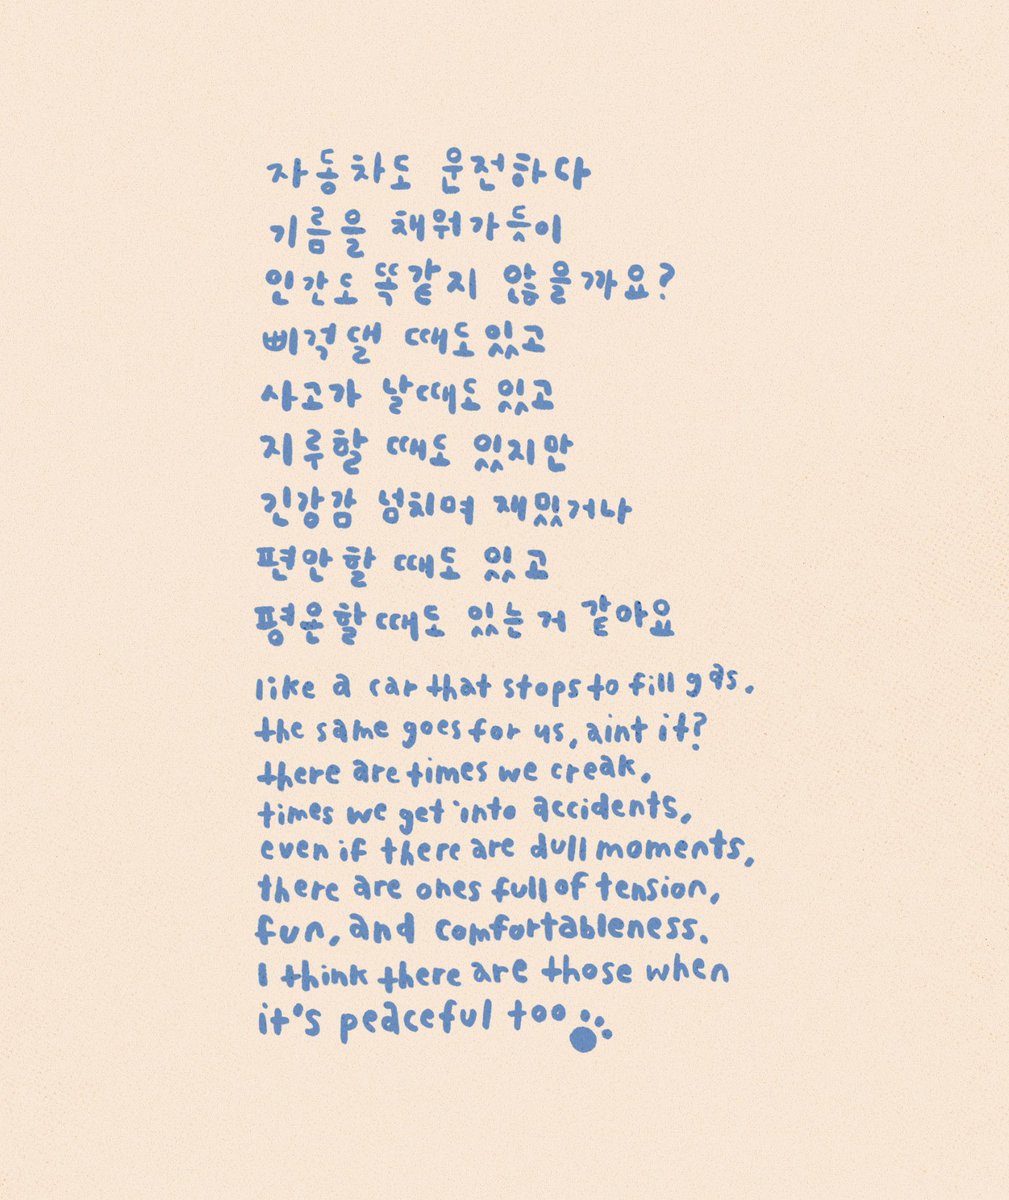 자동차도 운전하다
기름을 채워가듯이
인간도 똑같지 않을까요?
삐걱댈 때도있고
사고가 날때도 있고
지루할 때도 있지만
긴장감 넘치며 재밌거나
편안할 때도 있고
평온할때도 있는거 같아요
like a car that stops to fill gas.
the same goes for us, aint it?
there are times we creak,
times we get into accidents,
even if there are dull moments,
there are ones full of tension,
fun, and comfortableness.
I think there are those when
it's peaceful too